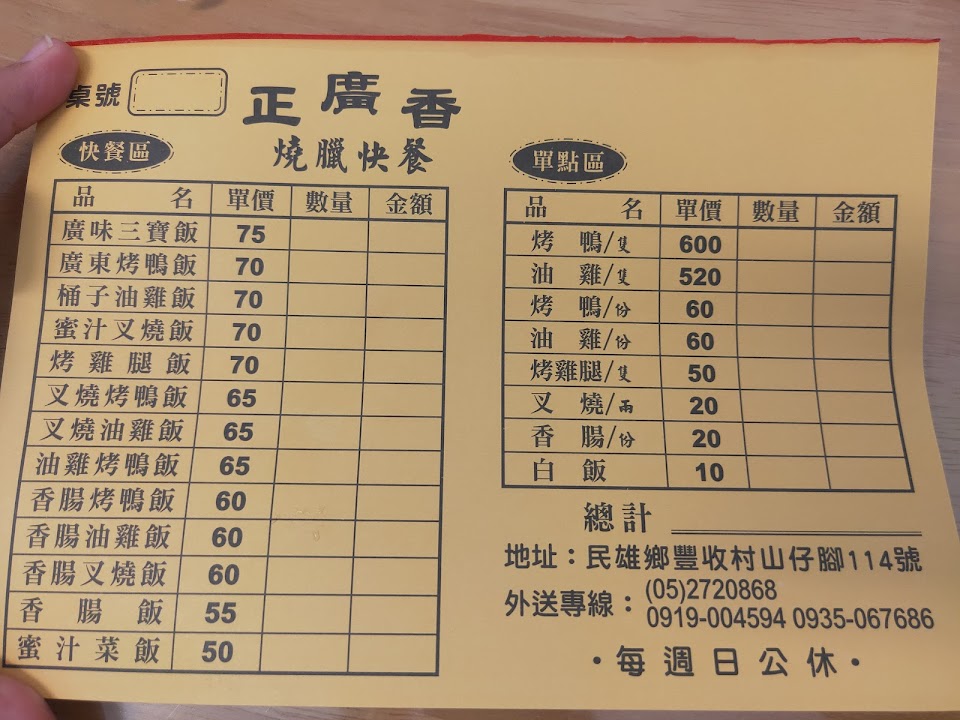 桌號
正廣香
燒臘快餐
快餐區
品名 單價 數量 金額
廣味三寶飯 75
廣東烤鴨飯 70
桶子油雞飯 70
蜜汁叉燒飯 70
烤雞腿飯 70
叉燒烤鴨飯 65
叉燒油雞飯 65
油雞烤鴨飯 65
香腸烤鴨飯 60
香腸油雞飯 60
香腸叉燒飯 60
香腸飯 55
蜜汁菜飯 50
單點區
品名 單價 數量 金額
烤鴨/隻 600
油雞/隻 520
烤鴨/份 60
油雞/份 60
烤雞腿/隻 50
叉燒/兩 20
香腸/份 20
白飯 10
總計
地址：民雄鄉豐收村山仔腳114號
外送專線：(05)2720868
0919-004594 0935-067686
•每週日公休•